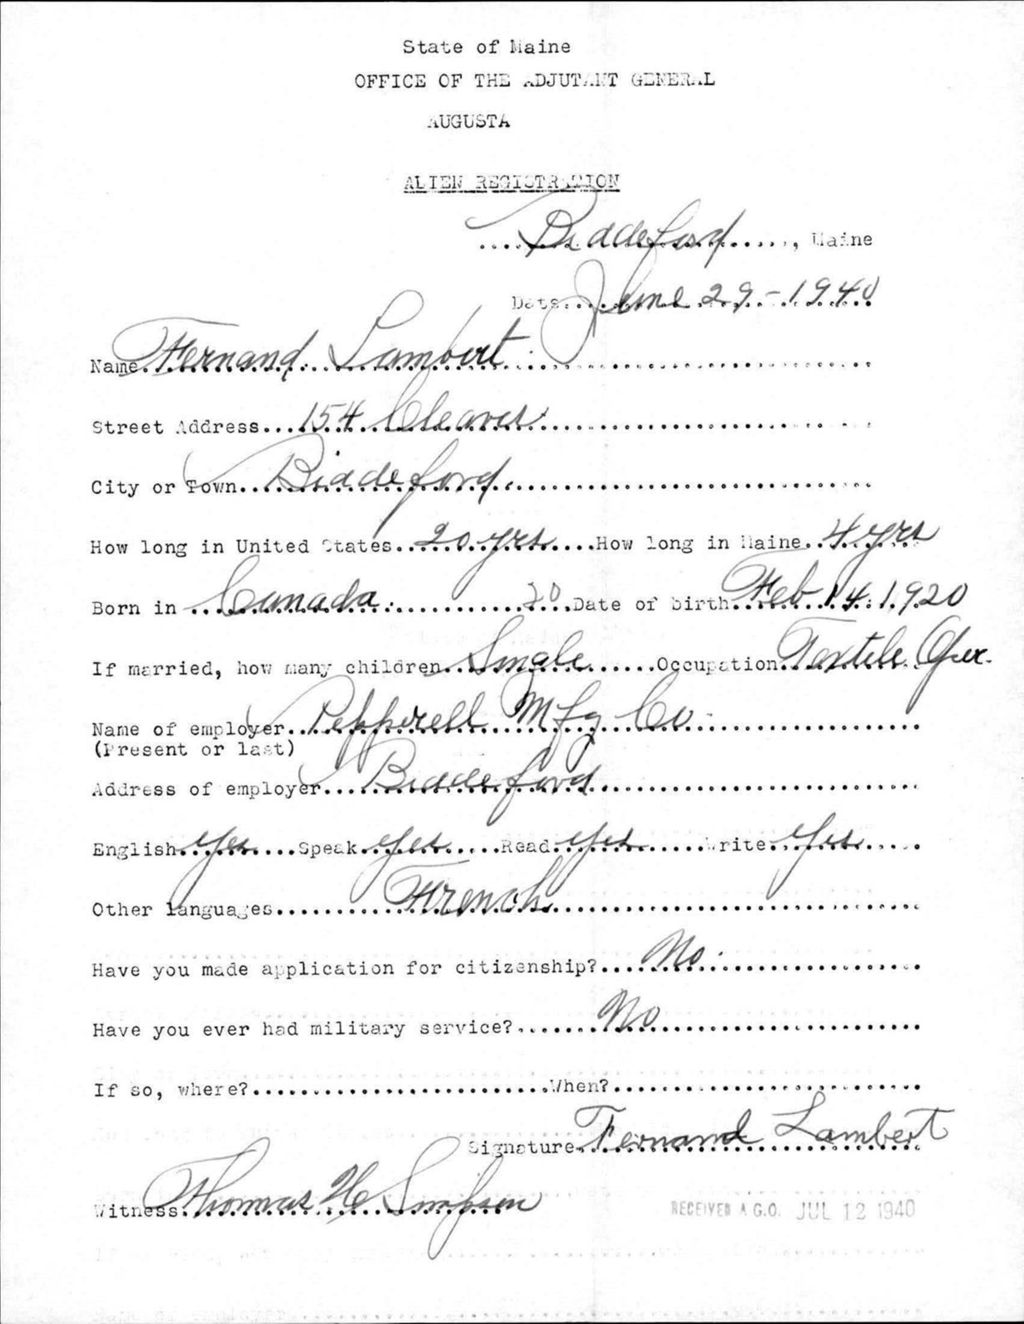 State of Maine
OFFICE OF THE ADJUTANT GENERAL
AUGUSTA
ALIEN REGISTRATION
Biddeford, Maine
Date June 29-1940
Name Fernand Lambert
Street Address 154 Cleaves
City or Town Biddeford
How long in United States 20 yrs How long in Maine 4 yrs
Born in Canada 20 Date of birth Feb 14 1920
If married, how many children Single Occupation Textile Oper.
Name of employer Pepperell Mfg Co
(Present or last)
Address of employer Biddeford
English Yes Speak Yes Read Yes Write Yes
Other languages French
Have you made application for citizenship? No
Have you ever had military service? No
If so, where? When?
Signature Fernand Lambert
Witness Thomas H Simpson
RECEIVED A.G.O. JUL 12 1940